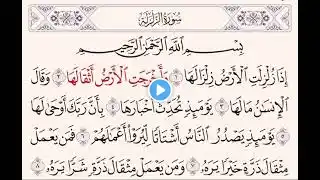 سُورَةُ الزَّلْزَلَةِ
بِسْمِ اللَّهِ الرَّحْمَٰنِ الرَّحِيمِ
إِذَا زُلْزِلَتِ الْأَرْضُ زِلْزَالَهَا ١ وَأَخْرَجَتِ الْأَرْضُ أَثْقَالَهَا ٢ وَقَالَ
الْإِنسَانُ مَا لَهَا ٣ يَوْمَئِذٍ تُحَدِّثُ أَخْبَارَهَا ٤ بِأَنَّ رَبَّكَ أَوْحَىٰ لَهَا
٥ يَوْمَئِذٍ يَصْدُرُ النَّاسُ أَشْتَاتًا لِّيُرَوْا أَعْمَالَهُمْ ٦ فَمَن يَعْمَلْ
مِثْقَالَ ذَرَّةٍ خَيْرًا يَرَهُ ٧ وَمَن يَعْمَلْ مِثْقَالَ ذَرَّةٍ شَرًّا يَرَهُ ٨